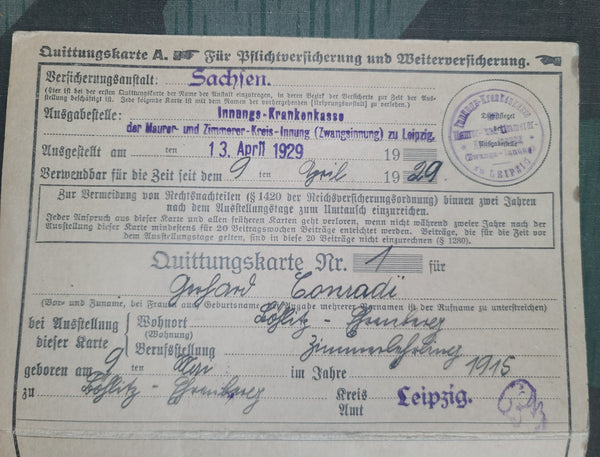 Quittungskarte A. Für Pflichtversicherung und Weiterversicherung.
Versicherungsanstalt: Sachsen.
(Hier ist bei der ersten Quittungskarte der Name der Anstalt einzutragen, in deren Bezirk der Versicherte zur Zeit der Aus-
stellung beschäftigt ist. Jede folgende Karte ist mit dem Namen der vorhergehenden (Ursprungsanstalt) zu versehen.)
Ausgabestelle: Innungs-Krankenkasse
der Maurer- und Zimmerer-Kreis-Innung (Zwangsinnung) zu Leipzig.
Ausgestellt am ten 13. April 1929 19
Verwendbar für die Zeit seit dem 9 ten April 1929.
Zur Vermeidung von Rechtsnachteilen (§ 1420 der Reichsversicherungsordnung) binnen zwei Jahren
nach dem Ausstellungstage zum Umtausch einzureichen.
Jeder Anspruch aus dieser Karte und allen früheren Karten geht verloren, wenn nicht während zweier Jahre nach der
Ausstellung dieser Karte mindestens für 20 Beitragswochen Beiträge entrichtet werden. Beiträge, die für die Zeit vor
dem Ausstellungstage gelten, sind in diese 20 Beiträge nicht einzurechnen (§ 1280).
Innungs-Krankenkasse
(Zwangs-Innung)
zu LEIPZIG
Quittungskarte Nr. 1 für
Gerhard Conradi
(Vor- und Zuname, bei Frauen auch Geburtsname. Bei Angabe mehrerer Vornamen ist der Rufname zu unterstreichen)
bei Ausstellung dieser Karte
Wohnort Böhlitz-Ehrenberg
(Wohnung)
Berufsstellung Zimmerlehrling
geboren am 9 ten Mai im Jahre 1915
zu Böhlitz-Ehrenberg Kreis Amt Leipzig.